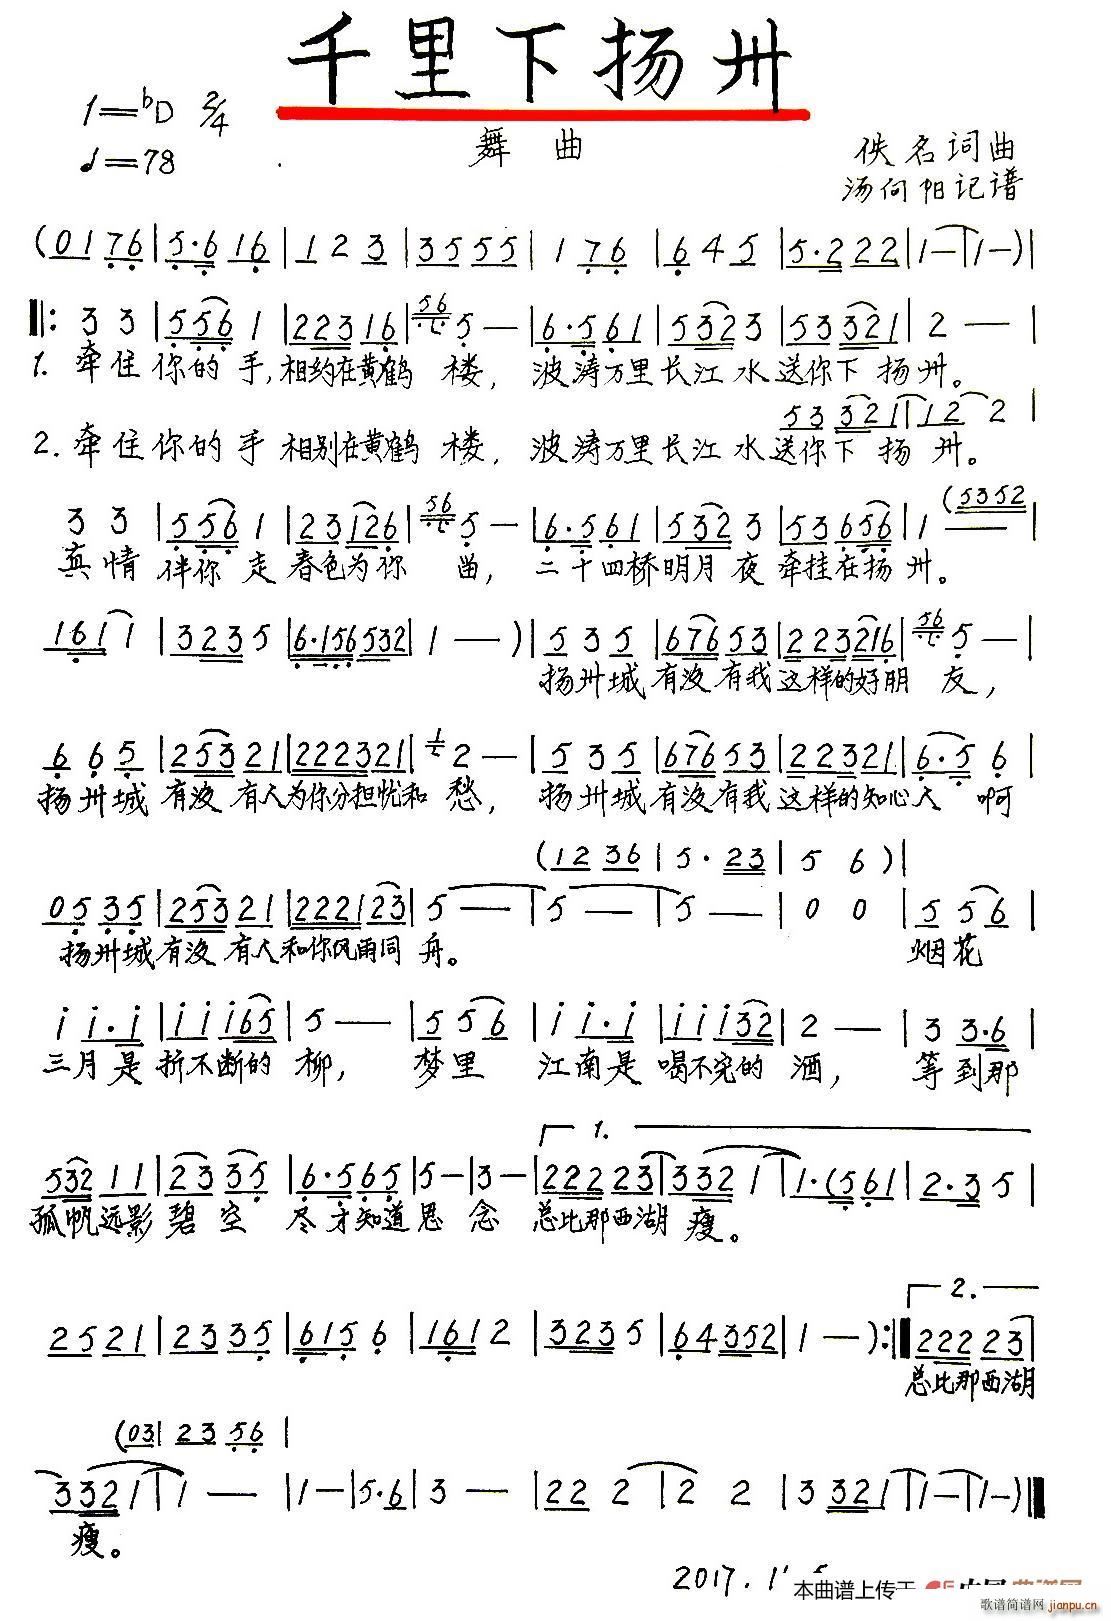 千里下扬州
1=♭D 2/4
♩=78
舞曲
佚名词曲
汤向阳记谱
(0176|5·616|123|3555|176|645|5·222|1—|1—)|
‖:33|5561|222316|565—|6·561|5323|53321|2—|
1.牵住你的手,相约在黄鹤楼,波涛万里长江水送你下扬州。
53321|122|
2.牵住你的手相别在黄鹤楼,波涛万里长江水送你下扬州。
(5352
33|5561|23126|565—|6·561|5323|53656|1—|
真情伴你走春色为你留,二十四桥明月夜牵挂在扬州。
1611|3235|6·156532|1—)|535|67653|223216|565—|
扬州城有没有我这样的好朋友,
665|25321|222321|12—|535|67653|22321|6·56|
扬州城有没有人为你分担忧和愁,扬州城有没有我这样的知心人啊
(1236|5·23|56)|
0535|25321|222123|5—|5—|5—|00|556|
扬州城有没有人和你风雨同舟。烟花
11·1|11165|5—|556|11·1|11132|2—|33·6|
三月是折不断的柳,梦里江南是喝不完的酒,等到那
1.
53211|2335|6·565|5—|3—|22223|3321|1·(561|2·35|
孤帆远影碧空尽才知道思念总比那西湖瘦。
2.
2521|2335|6156|1612|3235|64352|1—):‖22223|
总比那西湖
(03|2356|
3321|1—|1—|5·6|3—|222|22|3321|1—|1—)‖
瘦。
2017.1
本曲谱上传于
歌谱简谱网
jianpu.cn